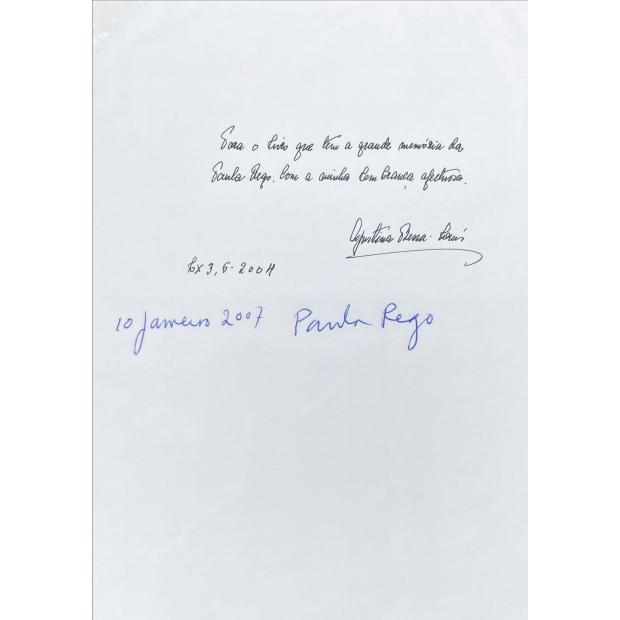 Para o livro que tem a grande memória da
Paula Rego. Com a minha lembrança afectuosa.
Agustina Bessa-Luís
Lx 3, 6-2004
10 Janeiro 2007 Paula Rego